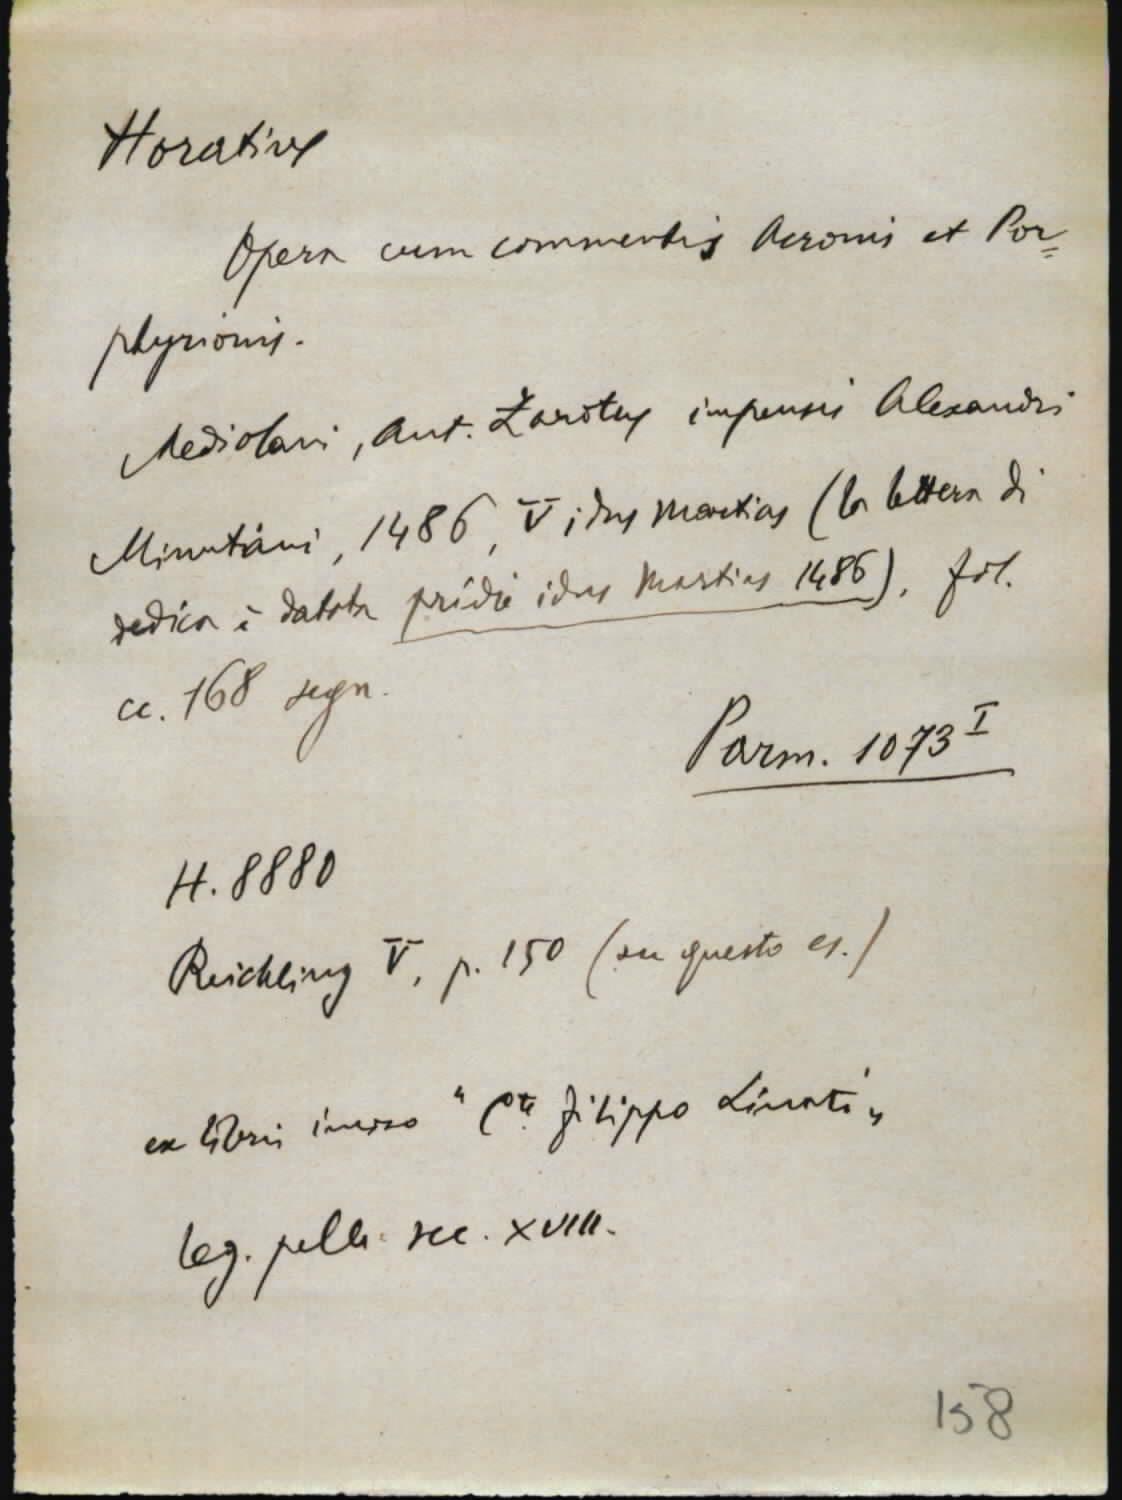 Horatius
Opera cum commentis Acronis et Por=
phyrionis.
Mediolani, Ant. Zarotus impensis Alexandri
Minutiani, 1486, V idus Martias (la lettera di
dedica è datata pridie idus Martias 1486), fol.
cc. 168 segn.
Parm. 1073 I
H. 8880
Reichling V, p. 150 (su questo es.)
ex libris inciso "Cte Filippo Linati"
leg. pelle sec. XVIII.
158